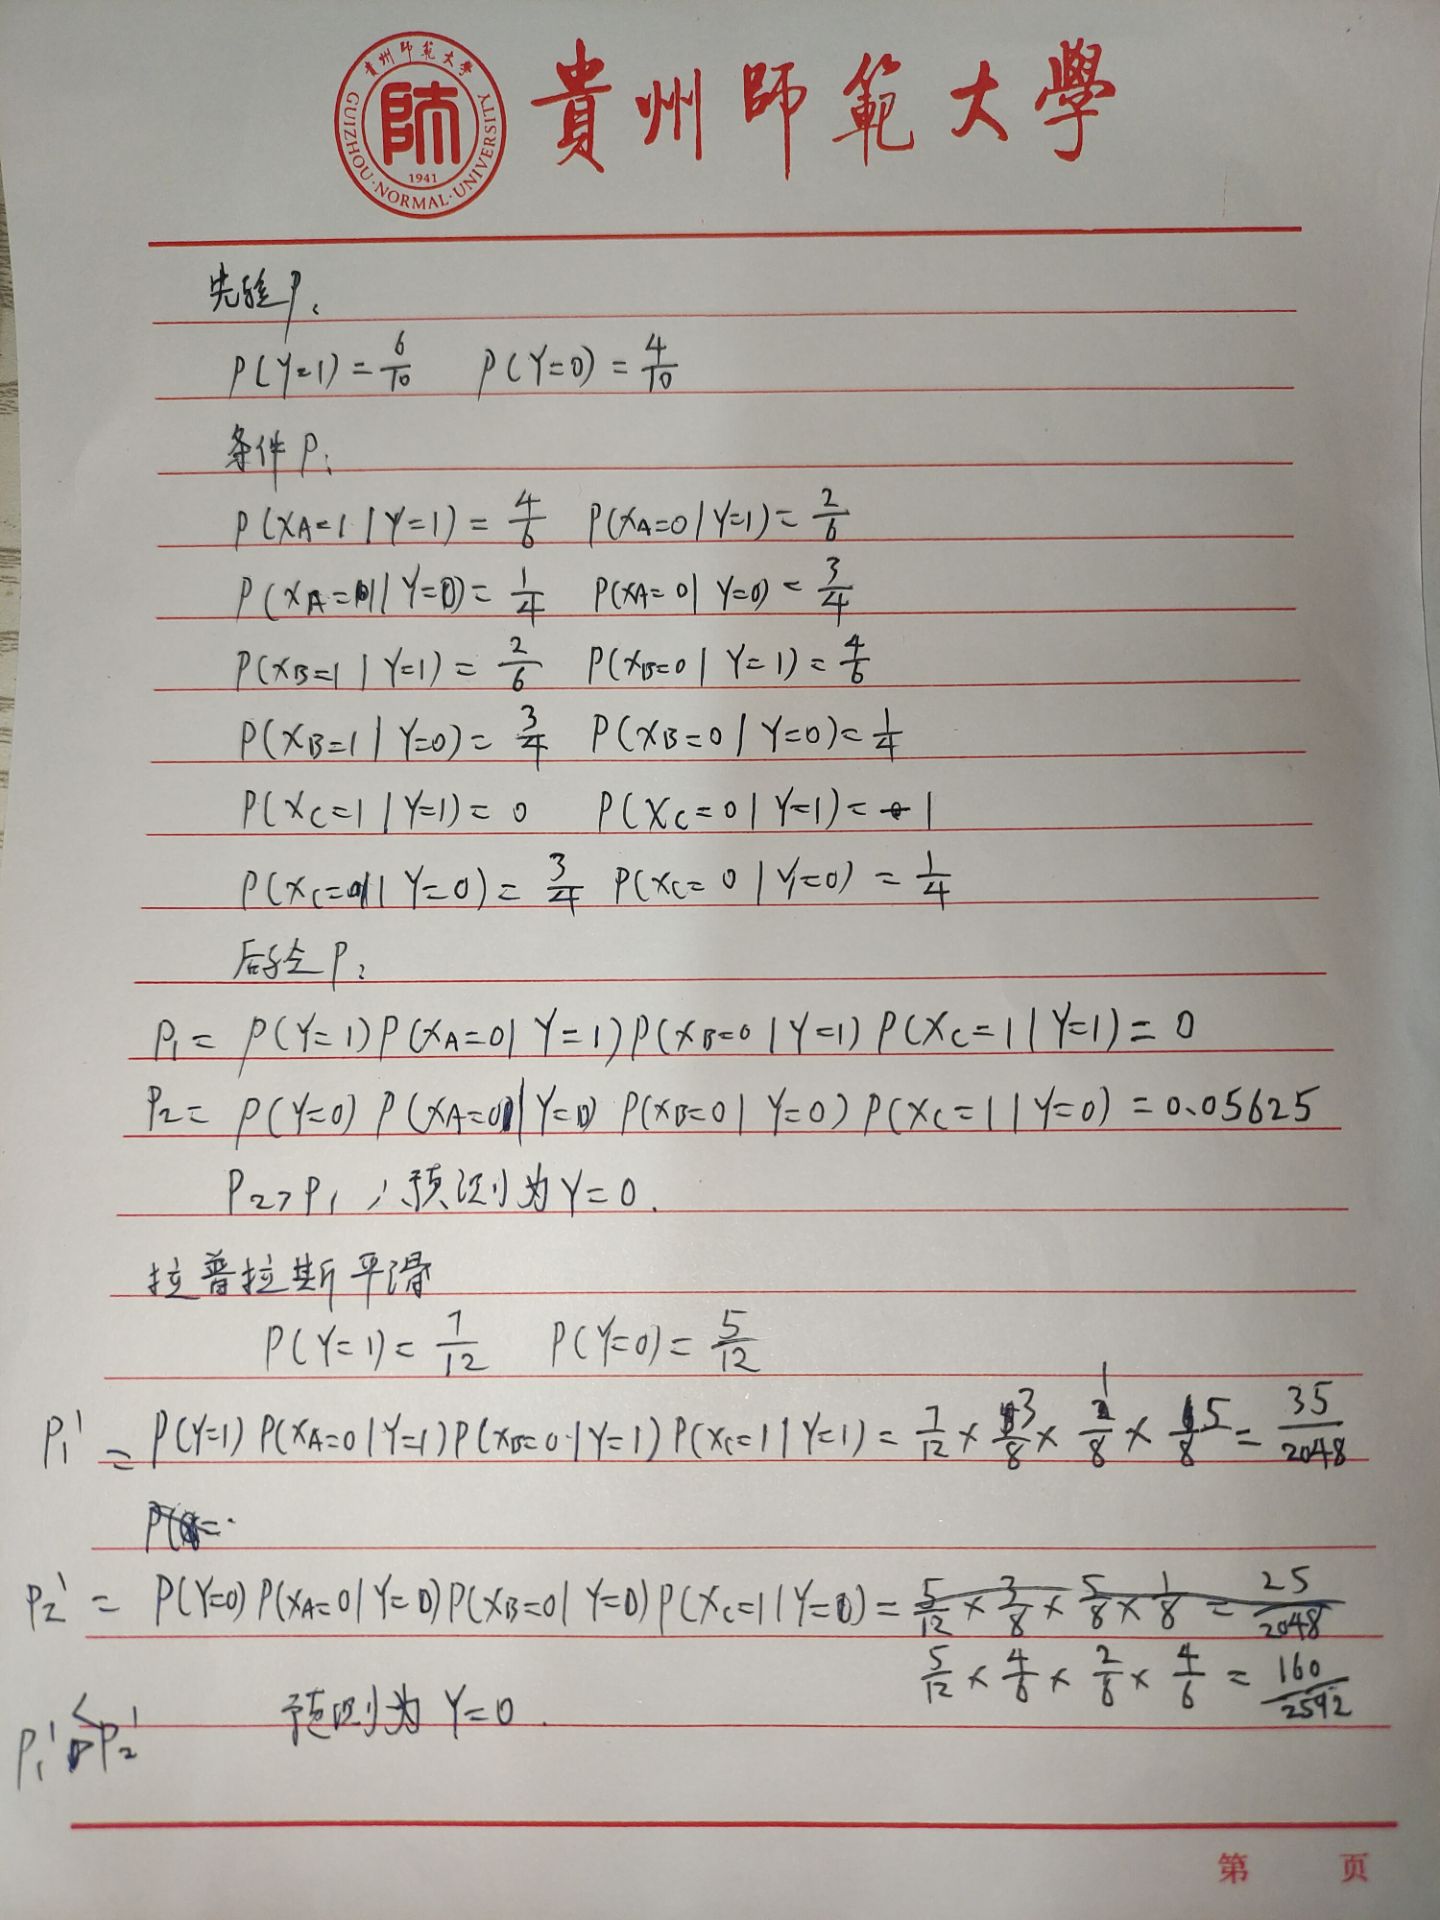 貴州師範大學
GUIZHOU·NORMAL·UNIVERSITY
1941
貴州師範大學
先验P:
P(Y=1)=6/10 P(Y=0)=4/10
条件P:
P(XA=1|Y=1)=4/6 P(XA=0|Y=1)=2/6
P(XA=1|Y=0)=1/4 P(XA=0|Y=0)=3/4
P(XB=1|Y=1)=2/6 P(XB=0|Y=1)=4/6
P(XB=1|Y=0)=3/4 P(XB=0|Y=0)=1/4
P(XC=1|Y=1)=0 P(XC=0|Y=1)=1
P(XC=1|Y=0)=3/4 P(XC=0|Y=0)=1/4
后验P:
P1=P(Y=1)P(XA=0|Y=1)P(XB=0|Y=1)P(XC=1|Y=1)=0
P2=P(Y=0)P(XA=0|Y=0)P(XB=0|Y=0)P(XC=1|Y=0)=0.05625
P2>P1,预测为Y=0.
拉普拉斯平滑
P(Y=1)=7/12 P(Y=0)=5/12
P1'=P(Y=1)P(XA=0|Y=1)P(XB=0|Y=1)P(XC=1|Y=1)=7/12×3/8×1/8×5/8=35/2048
P2'=P(Y=0)P(XA=0|Y=0)P(XB=0|Y=0)P(XC=1|Y=0)=5/12×3/8×5/8×1/8=25/2048
5/12×4/6×2/6×4/6=160/2592
P1'<P2' 预测为Y=0.
第 页